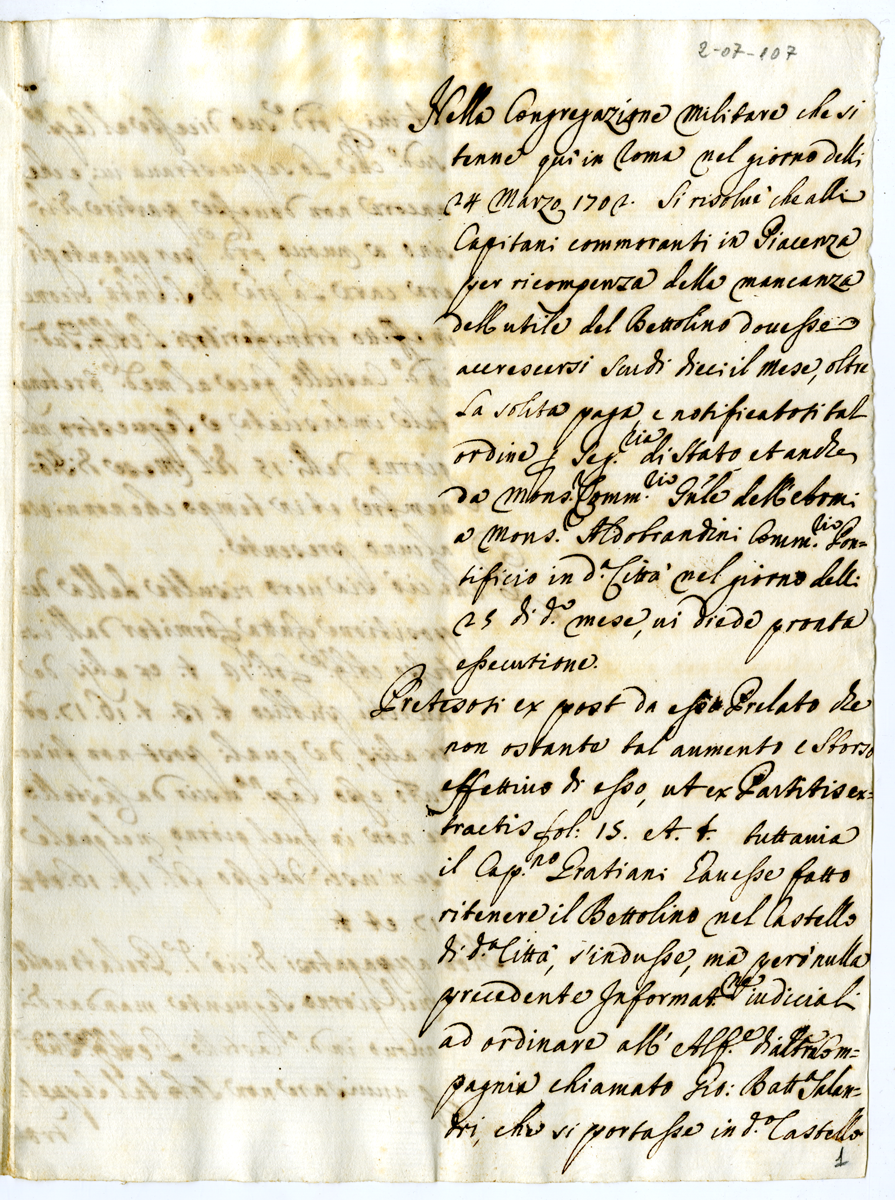 2-07-107
Nella Congregazione Militare che si
tenne qui in Roma nel giorno delli
24 Marzo 1702. Si risolué che alli
Capitani commoranti in Piacenza
per ricompenza della mancanza
dell'utile del Bettolino douesse
accrescersi Scudi dieci il Mese, oltre
la solita paga e notificatosi tal
ordine p Seg.ria di Stato et anche
da Mons.r Comm.rio Gn'le dell'
a Mons.r Aldobrandini Comm.rio Pon=
tificio in d.a Città nel giorno delli
25 di d.o mese, ui diede pronta
essecutione.
Pretesosi ex post da esso Prelato che
non ostante tal aumento e Sborso
effettiuo di esso, ut ex Partitis ex=
tractis fol: 15. et t. tuttauia
il Cap.no Gratiani hauesse fatto
ritenere il Bettolino nel Castello
di d.a Città, s'indusse, mà però nulla
precedente Informat.ne Giudiciali
ad ordinare all' Alf.e di altra Com=
pagnia chiamato Gio: Batta Salan=
dri, che si portasse in d.o Castello
1